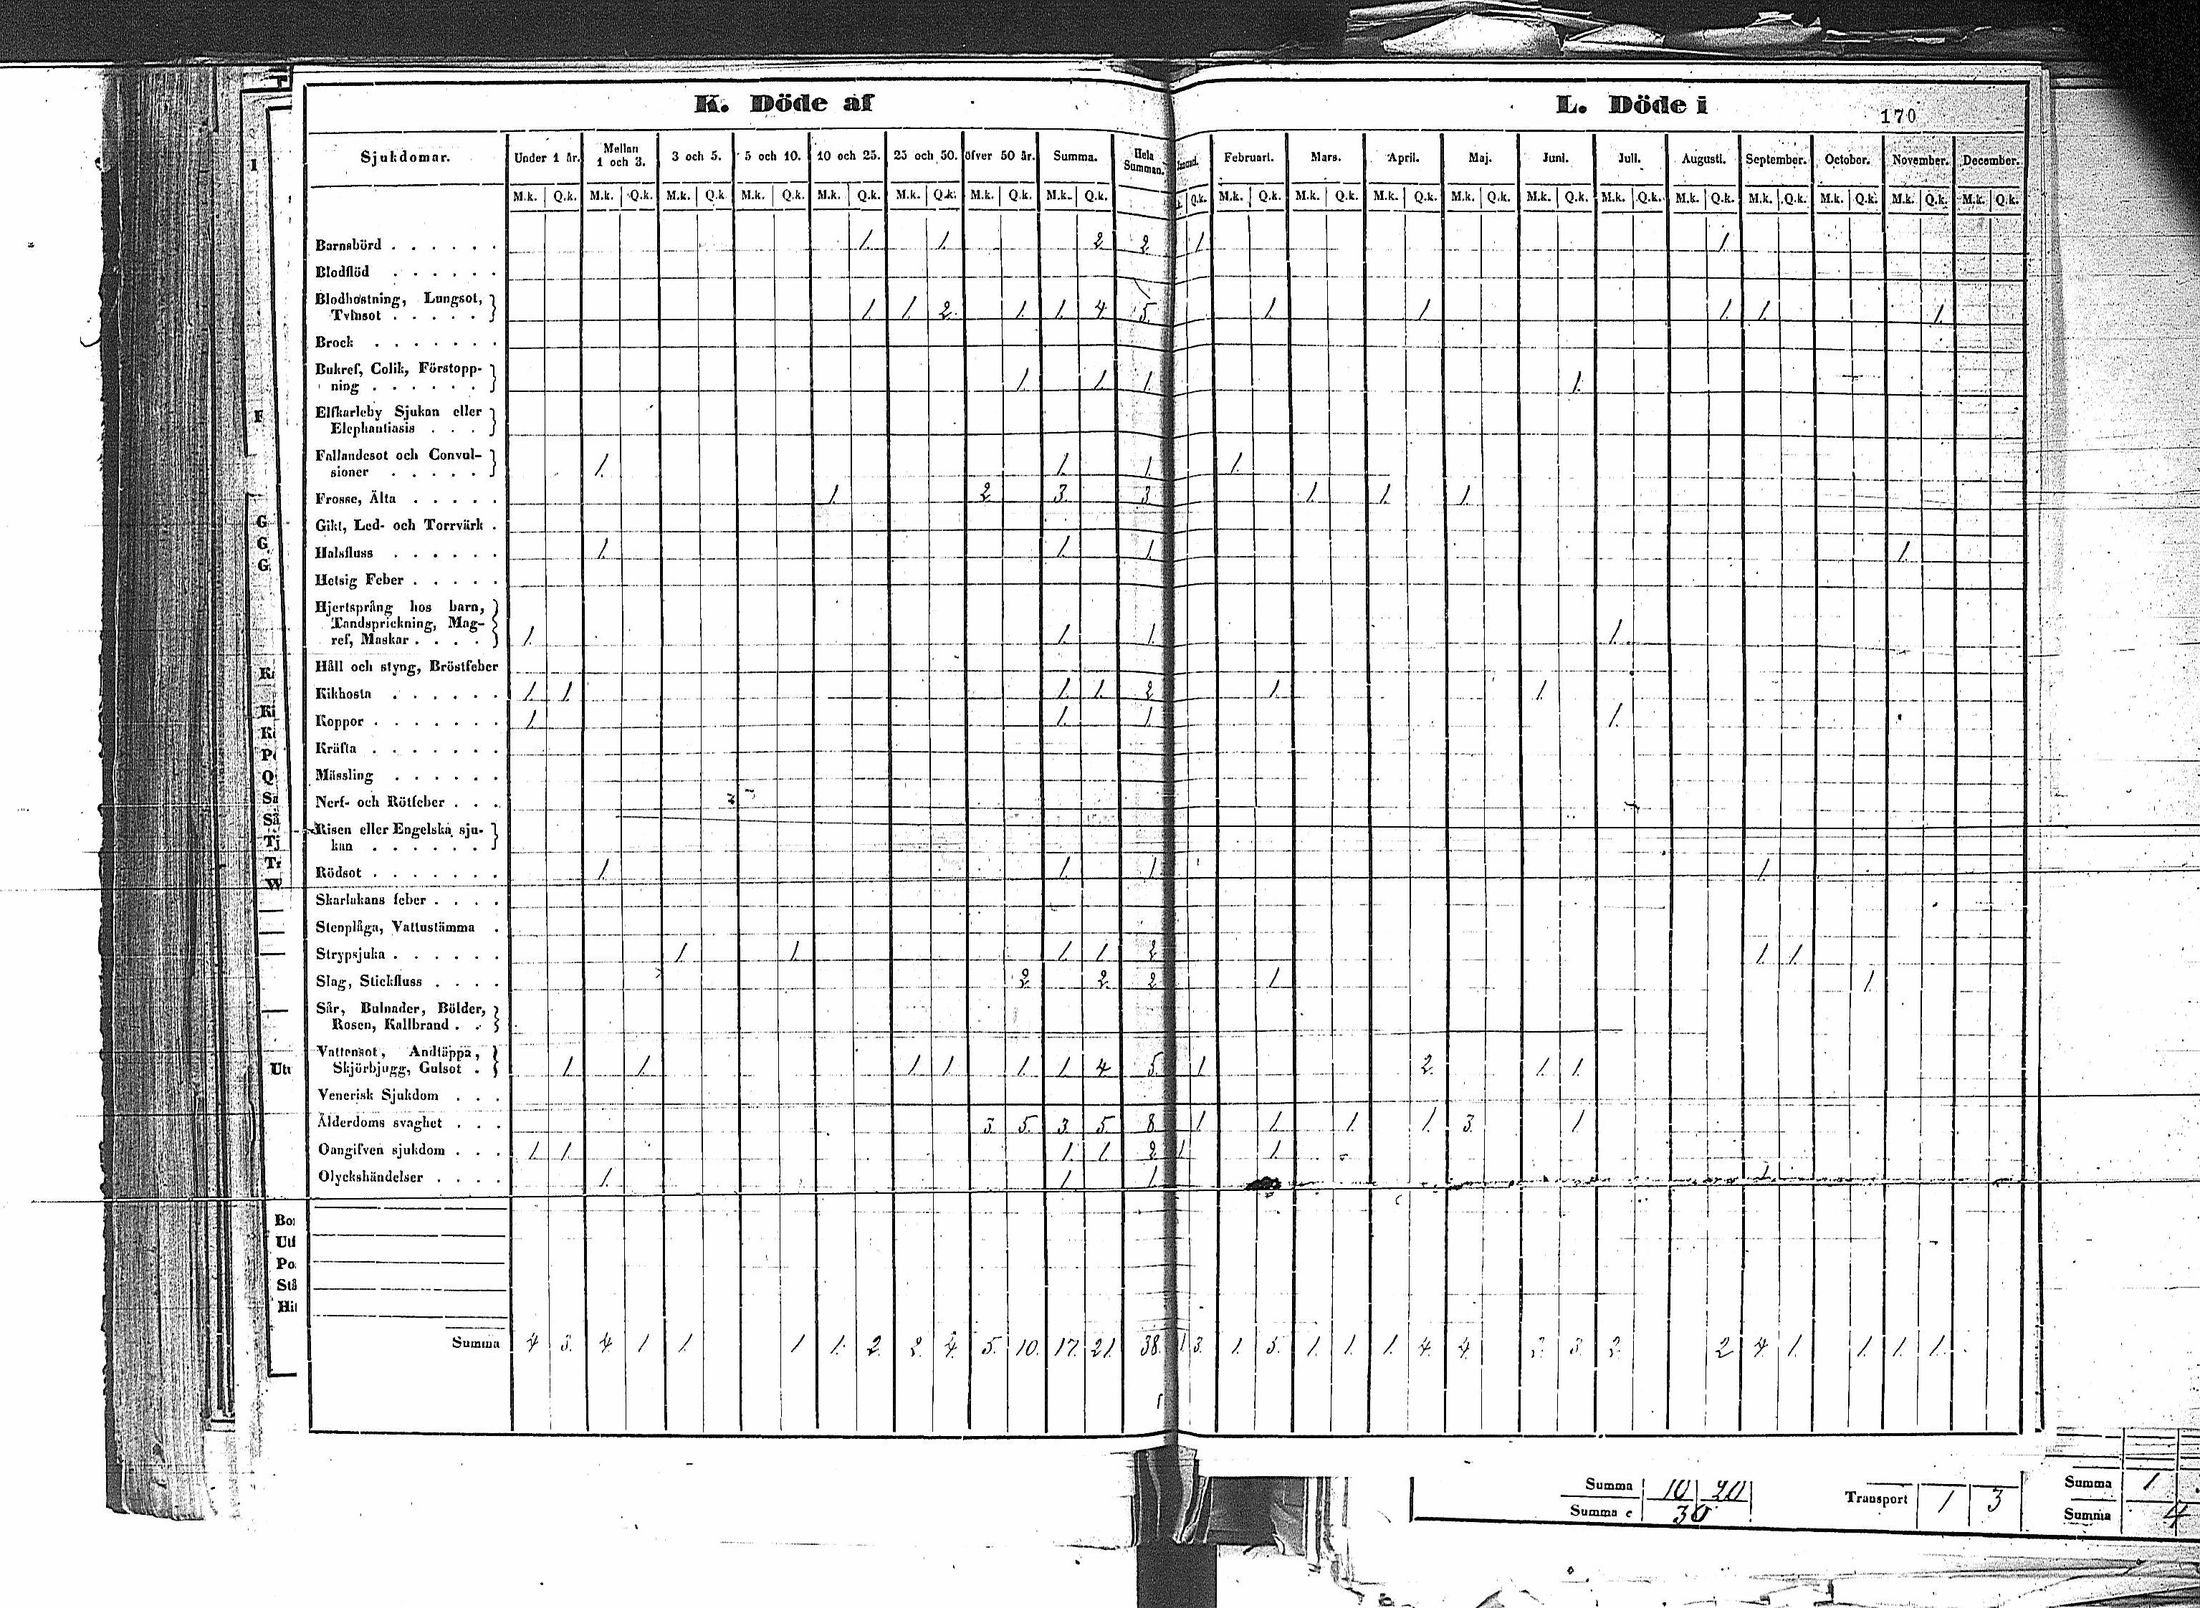 K. Döde af
L. Döde i
170
Sjukdomar. Under 1 år. Mellan 1 och 3. 3 och 5. 5 och 10. 10 och 25. 25 och 50. öfver 50 år. Summa. Hela Summan. Januari. Februari. Mars. April. Maj. Juni. Juli. Augusti. September. October. November. December.
M.k. Q.k. M.k. Q.k. M.k. Q.k M.k. Q.k. M.k. Q.k. M.k. Q.k. M.k. Q.k. M.k. Q.k. Q.k. M.k. Q.k. M.k. Q.k. M.k. Q.k. M.k. Q.k. M.k. Q.k. M.k. Q.k. M.k. Q.k. M.k. Q.k. M.k. Q.k. M.k. Q.k. M.k. Q.k.
Barnsbörd . . . . . . 1. 1. 2 2 1 1.
Blodflöd . . . . . .
Blodhostning, Lungsot,
Tvinsot . . . . . 1. 1. 2. 1. 1. 4 5 1. 1. 1. 1. 1.
Brock . . . . . . .
Bukref, Colik, Förstopp-
ning . . . . . . 1. 1. 1. 1.
Elfkarleby Sjukan eller
Elephantiasis . . .
Fallandesot och Convul-
sioner . . . . . 1. 1. 1. 1.
Frosse, Älta . . . . . 1. 2. 3. 3. 1. 1. 1.
Gikt, Led- och Torrvärk .
Halsfluss . . . . . . 1. 1. 1. 1.
Hetsig Feber . . . . .
Hjertsprång hos barn,
Tandsprickning, Mag-
ref, Maskar . . . . 1. 1. 1. 1.
Håll och styng, Bröstfeber
Kikhosta . . . . . . 1. 1 1. 1. 2 1. 1.
Koppor . . . . . . . 1. 1. 1. 1.
Kräfta . . . . . . .
Mässling . . . . . .
Nerf- och Rötfeber . . .
Risen eller Engelska sju-
kan . . . . . .
Rödsot . . . . . . . 1. 1. 1. 1.
Skarlakans feber . . . .
Stenplåga, Vattustämma .
Strypsjuka . . . . . . 1. 1. 1. 1. 2 1. 1.
Slag, Stickfluss . . . . 2. 2. 2 1. 1.
Sår, Bulnader, Bölder,
Rosen, Kallbrand . .
Vattensot, Andtäppa,
Skjörbjugg, Gulsot . 1. 1. 1. 1. 1. 1. 4 5 1. 2. 1. 1.
Venerisk Sjukdom . . .
Ålderdoms svaghet . . . 3. 5. 3. 5. 8. 1. 1. 1. 1. 3. 1.
Oangifven sjukdom . . . 1. 1. 1. 1. 2 1 1.
Olyckshändelser . . . . 1. 1. 1. 1.
Summa 4 3. 4. 1 1. 1 1. 2. 2. 4. 5. 10. 17. 21. 38. 1 3. 1. 5. 1. 1. 1. 4. 4. 3. 3. 2. 2 4 1. 1. 1. 1.
F
G
G
G
Utt
Utf
Hit
Summa 10 20
Summa 30
Transport 1 3
Summa 1
Summa 4